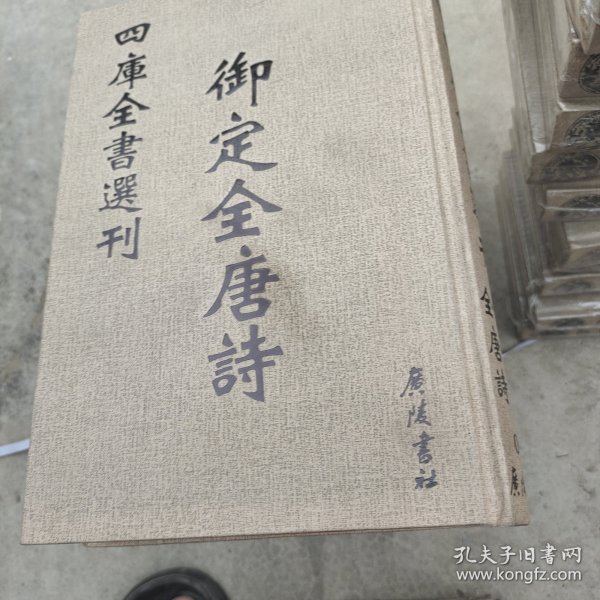 四庫全書選刊
御定全唐詩
廣陵書社
全唐詩
孔夫子旧书网
www.kongfz.com